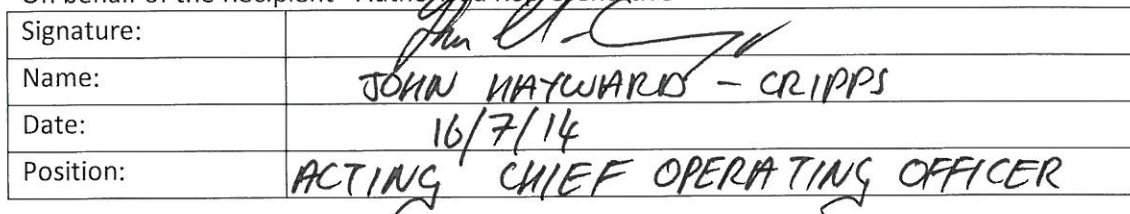 On behalf of the Recipient - Authorised Representative
Signature:
Name: JOHN HAYWARD - CRIPPS
Date: 16/7/14
Position: ACTING CHIEF OPERATING OFFICER